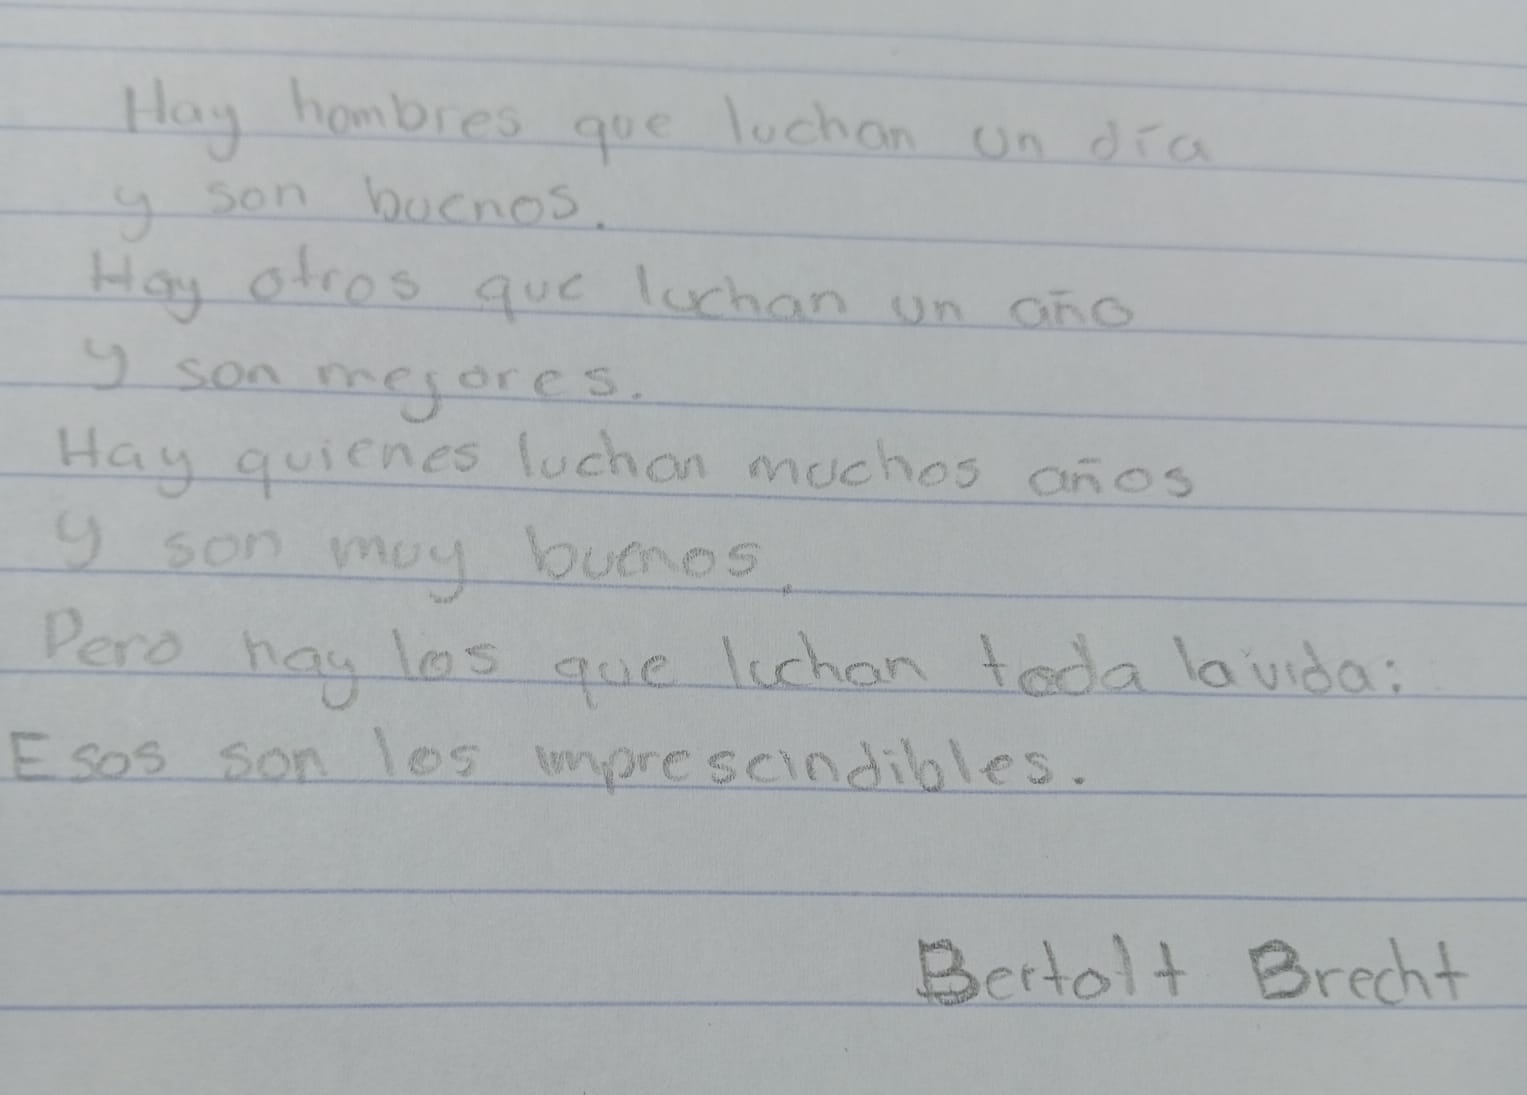 Hay hombres que luchan un día
y son buenos.
Hay otros que luchan un año
y son mejores.
Hay quienes luchan muchos años
y son muy buenos.
Pero hay los que luchan toda la vida:
Esos son los imprescindibles.
Bertolt Brecht